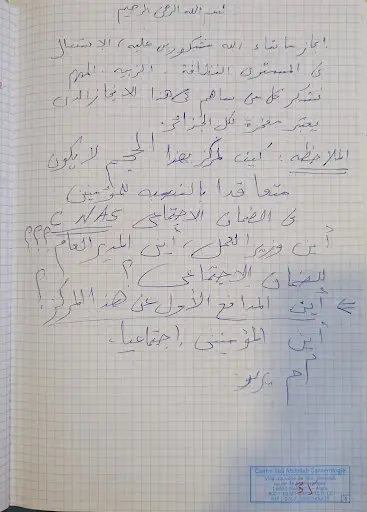 بسم الله الرحمن الرحيم
إنجاز ما شاء الله مشكورين عليه، الاستقبال
في المستوى النظافة، التربية، المهم
نشكر كل من ساهم في هذا الانجاز الذي
يعتبر مفخرة لكل الجزائر.
الملاحظة: كيف لمركز بهذا الحجم لا يكون
متعاقدا بالنسبة للمؤمنين
في الضمان الاجتماعي CNAS
أين وزير العمل، أين المدير العام ؟؟؟
للضمان الاجتماعي؟ ؟
أين المدافع الأول عن هذا المركز؟
أين المؤمنين إجتماعيا.
أم